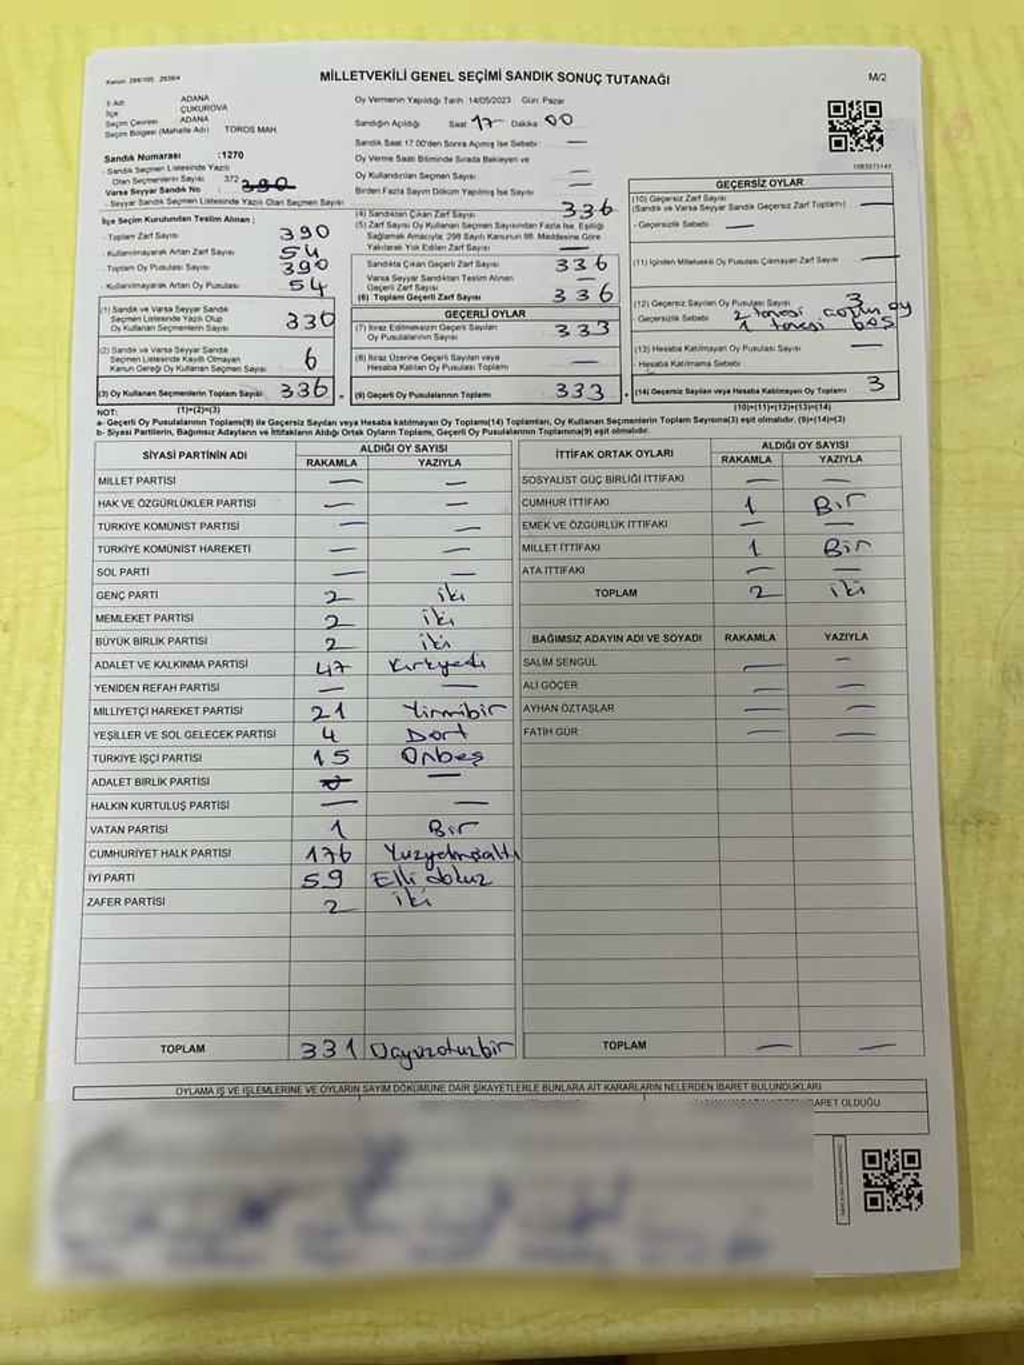 MİLLETVEKİLİ GENEL SEÇİMİ SANDIK SONUÇ TUTANAĞI
M/2
İl Adı ADANA
İlçe ÇUKUROVA
Seçim Çevresi ADANA
Seçim Bölgesi (Mahalle Adı) TOROS MAH.
Sandık Numarası :1270
Sandık Seçmen Listesinde Yazılı
Olan Seçmenlerin Sayısı 372
Varsa Seyyar Sandık No 390
Seyyar Sandık Seçmen Listesinde Yazılı Olan Seçmen Sayısı
İlçe Seçim Kurulundan Teslim Alınan ;
Toplam Zarf Sayısı 390
Kullanılmayarak Artan Zarf Sayısı 54
Toplam Oy Pusulası Sayısı 390
Kullanılmayarak Artan Oy Pusulası 54
(1) Sandık ve Varsa Seyyar Sandık
Seçmen Listesinde Yazılı Olup
Oy Kullanan Seçmenlerin Sayısı 330
(2) Sandık ve Varsa Seyyar Sandık
Seçmen Listesinde Kayıtlı Olmayan
Kanun Gereği Oy Kullanan Seçmen Sayısı 6
(3) Oy Kullanan Seçmenlerin Toplam Sayısı 336
(1)+(2)=(3)
Oy Vermenin Yapıldığı Tarih :14/05/2023 Gün: Pazar
Sandığın Açıldığı Saat 17 Dakika 00
Sandık Saat 17.00'den Sonra Açılmış İse Sebebi : —
Oy Verme Saati Bitiminde Sırada Bekleyen ve
Oy Kullandırılan Seçmen Sayısı —
Birden Fazla Sayım Döküm Yapılmış İse Sayısı —
(4) Sandıktan Çıkan Zarf Sayısı 336
(5) Zarf Sayısı Oy Kullanan Seçmen Sayısından Fazla İse, Eşitliği
Sağlamak Amacıyla; 298 Sayılı Kanunun 98. Maddesine Göre
Yakılarak Yok Edilen Zarf Sayısı —
Sandıkta Çıkan Geçerli Zarf Sayısı 336
Varsa Seyyar Sandıktan Teslim Alınan
Geçerli Zarf Sayısı —
(6) Toplam Geçerli Zarf Sayısı 336
GEÇERLİ OYLAR
(7) İtiraz Edilmeksizin Geçerli Sayılan
Oy Pusulalarının Sayısı 333
(8) İtiraz Üzerine Geçerli Sayılan veya
Hesaba Katılan Oy Pusulası Toplamı —
(9) Geçerli Oy Pusulalarının Toplamı 333
GEÇERSİZ OYLAR
(10) Geçersiz Zarf Sayısı
(Sandık ve Varsa Seyyar Sandık Geçersiz Zarf Toplamı) —
- Geçersizlik Sebebi —
(11) İçinden Milletvekili Oy Pusulası Çıkmayan Zarf Sayısı —
(12) Geçersiz Sayılan Oy Pusulası Sayısı 3
- Geçersizlik Sebebi 2 tanesi oy
1 tanesi boş
(13) Hesaba Katılmayan Oy Pusulası Sayısı —
- Hesaba Katılmama Sebebi
(14) Geçersiz Sayılan veya Hesaba Katılmayan Oy Toplamı 3
(10)+(11)+(12)+(13)=(14)
NOT:
a- Geçerli Oy Pusulalarının Toplamı(9) ile Geçersiz Sayılan veya Hesaba katılmayan Oy Toplamı(14) Toplamları, Oy Kullanan Seçmenlerin Toplam Sayısına(3) eşit olmalıdır. (9)+(14)=(3)
b- Siyasi Partilerin, Bağımsız Adayların ve İttifakların Aldığı Ortak Oyların Toplamı, Geçerli Oy Pusulalarının Toplamına(9) eşit olmalıdır.
SİYASİ PARTİNİN ADI ALDIĞI OY SAYISI
RAKAMLA YAZIYLA
MİLLET PARTİSİ — —
HAK VE ÖZGÜRLÜKLER PARTİSİ — —
TÜRKİYE KOMÜNİST PARTİSİ — —
TÜRKİYE KOMÜNİST HAREKETİ — —
SOL PARTİ — —
GENÇ PARTİ 2 iki
MEMLEKET PARTİSİ 2 iki
BÜYÜK BİRLİK PARTİSİ 2 iki
ADALET VE KALKINMA PARTİSİ 47 Kırkyedi
YENİDEN REFAH PARTİSİ — —
MİLLİYETÇİ HAREKET PARTİSİ 21 Yirmibir
YEŞİLLER VE SOL GELECEK PARTİSİ 4 Dört
TÜRKİYE İŞÇİ PARTİSİ 15 Onbeş
ADALET BİRLİK PARTİSİ —
HALKIN KURTULUŞ PARTİSİ — —
VATAN PARTİSİ 1 Bir
CUMHURİYET HALK PARTİSİ 176 Yüzyetmişaltı
İYİ PARTİ 59 Elli dokuz
ZAFER PARTİSİ 2 iki
TOPLAM 331 Üçyüzotuzbir
İTTİFAK ORTAK OYLARI ALDIĞI OY SAYISI
RAKAMLA YAZIYLA
SOSYALİST GÜÇ BİRLİĞİ İTTİFAKI — —
CUMHUR İTTİFAKI 1 Bir
EMEK VE ÖZGÜRLÜK İTTİFAKI — —
MİLLET İTTİFAKI 1 Bir
ATA İTTİFAKI — —
TOPLAM 2 iki
BAĞIMSIZ ADAYIN ADI VE SOYADI RAKAMLA YAZIYLA
SALİM ŞENGÜL — —
ALİ GÖÇER — —
AYHAN ÖZTAŞLAR — —
FATİH GÜR — —
TOPLAM — —
OYLAMA İŞ VE İŞLEMLERİNE VE OYLARIN SAYIM DÖKÜMÜNE DAİR ŞİKAYETLERLE BUNLARA AİT KARARLARIN NELERDEN İBARET BULUNDUKLARI
İBARET OLDUĞU